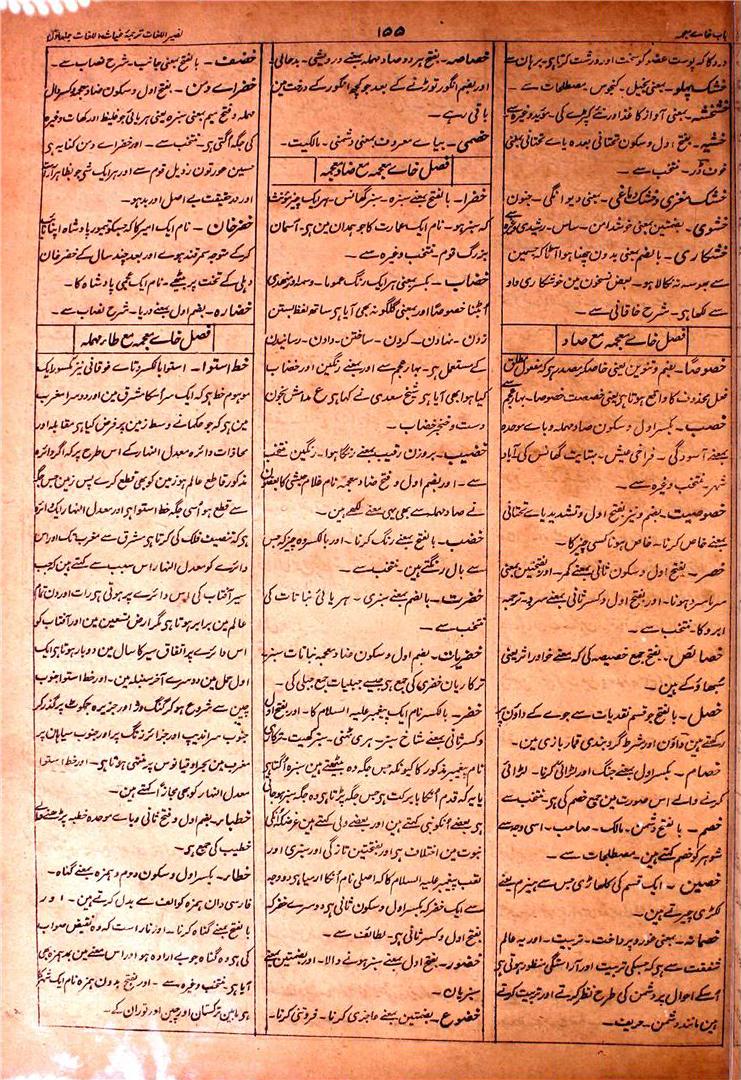 باب خاے معجمہ
۱۵۵
نصیر اللغات ترجمۂ غیاث اللغات جلد اول
خشک پہلو۔ بمعنی بخیل۔ کنجوس مصطلحات سے۔
خشیہ۔ بفتح اول و سکون تحتانی بعدہ یاے تحتانی بمعنی
خوف و ڈر۔ منتخب سے۔
خشک مغزی و خشک دماغی۔ بمعنی دیوانگی۔ جنون
خشکاری۔ بالضم بمعنی بدون چھنا ہوا آٹا کہ جسمین
سے بھوسہ نہ نکالا ہو۔ بعض نسخون مین خوشکاری واو
سے لکھا ہی۔ شرح خاقانی سے۔
فصل خاے معجمہ مع صاد
خصب۔ بکسر اول و سکون صاد مہملہ و باے موحدہ
بمعنے آسودگی۔ فراخی عیش۔ بہتایت گھانس کی آباد
شہر۔ منتخب وغیرہ سے۔
خصوصیت۔ بضم و نیز بفتح اول و تشدید یاے تحتانی
بمعنے خاص کرنا۔ خاص ہونا کسی چیز کا۔
خصر۔ بفتح اول و سکون ثانی بمعنے کمر۔ اور بفتحتین بمعنی
سرما سرد ہونا۔ اور بفتح اول و کسر ثانی بمعنے سرد۔ ترجمہ
ابرو کا۔ منتخب سے۔
خصائص۔ بفتح جمع خصیصہ کی کہ بمعنے خو اور اثر یعنی
سُبھاؤ کے ہین۔
خصل۔ بالفتح جو قسم نقدیات سے جوے کے داؤن پر
رکھتے ہین داؤن اور شرط گرو بندی قمار بازی مین۔
خصام۔ بکسر اول بمعنے جنگ اور لڑائی کرنا۔ لڑائی
کرنے والے اس صورت مین جمع خصم کی ہی۔ منتخب سے
خصم۔ بالفتح دشمن۔ مالک۔ صاحب۔ اسی وجہ سے
شوہر کو خصم کہتے ہین۔ مصطلحات سے۔
خصین۔ ایک قسم کی کلھاڑی جس سے ہیزم یعنے
لکڑی چیرتے ہین۔
خصمانہ۔ بمعنی غور و پرداخت۔ تربیت۔ اور یہ عالم
شفقت سے ہی کہ جسکی تربیت اور آراستگی منظور ہوتی ہی
اسکے احوال پر دشمن کی طرح نظر کرتے اور تربیت کرتے
ہین مانند دشمن۔ حریف۔
خصاصہ۔ بفتح ہر دو صاد مہملہ بمعنے درویشی۔ بدحالی۔
اور بضم انگور توڑنے کے بعد جو کچھ انگور کے درخت مین
باقی رہے۔
خصمی۔ بیاے معروف بمعنی دشمنی۔ مالکیت۔
فصل خاے معجمہ مع ضاد معجمہ
خضرا۔ بالفتح بمعنے سبزہ۔ سبز گھانس۔ ہر ایک چیز مونث
کہ سبز ہو۔ نام ایک عمارت کا جو ہمدان مین ہی۔ آسمان
بزرگ قوم۔ منتخب وغیرہ سے۔
خضاب۔ بکسر یعنی ہر ایک رنگ عموماً۔ وسمہ اور مہندی
زدن۔ نہادن۔ کردن۔ ساختن۔ دادن۔ رسانیدن
کے مستعمل ہی۔ بہار عجم سے اور بمعنے رنگین اور خضاب
کیا ہوا بھی آیا ہی شیخ سعدی نے کہا ہی ع مدامش بخون
دست و خنجر خضاب۔
خضیب۔ بروزن رقیب بمعنے رنگا ہوا۔ رنگین منتخب
خضب۔ بالفتح بمعنے رنگ کرنا۔ اور بالکسر وہ چیز کہ جس
سے بال رنگتے ہین۔ منتخب سے۔
خضرت۔ بالضم بمعنے سبزی۔ ہریائی نباتات کی
منتخب سے۔
خضریات۔ بضم اول و سکون ضاد معجمہ نباتات سبز۔
ترکاریان خضری کی جمع ہی جیسے جبلیات جمع جبلی کی۔
خضر۔ بالکسر نام ایک پیغمبر علیہ السلام کا۔ اور بفتح اول
و کسر ثانی بمعنے شاخ سبز۔ ہری ٹہنی۔ سبز کھیت۔ ترکاری
نام پیغمبر مذکور کا کیونکہ جس جگہ وہ بیٹھتے ہین سبزہ اُگتا ہی
یا یہ کہ قدم اُنکا بابرکت ہی جس جگہ پڑتا ہی وہ جگہ سبز ہوجاتی
ہی بعضے اُنکو نبی کہتے ہین اور بعضے ولی کہتے ہین غرضکہ اُنکی
نبوت مین اختلاف ہی اور بفتحتین تازگی اور سبزی اور
لقب پیغمبر علیہ السلام کا کہ اصلی نام اُنکا ارمیا ہی دو وجہ
سے ایک خضر کہ بکسر اول و سکون ثانی ہی دوسرے خضر کہ
بفتح اول و کسر ثانی ہی۔ لطائف سے۔
خضور۔ بفتح اول بمعنے سبز ہونے والا۔ اور بضمتین بمعنے
سبزیان۔
خضوع۔ بضمتین بمعنے عاجزی کرنا۔ فروتنی کرنا۔
خضف۔ بالفتح بمعنی جانب۔ شرح نصاب سے۔
خضراے دمن۔ بفتح اول و سکون ضاد معجمہ و کسر دال
مہملہ و فتح میم بمعنی سبزہ یعنی ہریالی جو غلیظ اور کھات وغیرہ
کی جگہ اُگتی ہی۔ منتخب سے۔ اور خضراے دمن کنایہ ہی
حسین عورتون رذیل قوم سے اور ہر ایک شی جو بظاہر آراستہ
اور درحقیقت بے اصل اور بد ہو۔
خضر خان۔ نام ایک امیر کا کہ جسکو تیمور بادشاہ اپنا نائب
کرکے متوجہ سمرقند ہوے اور بعد چند سال کے خضر خان
دہلی کے تخت پر بیٹھے۔ نام ایک عجمی بادشاہ کا۔
خضارہ۔ بضم اول بمعنے دریا۔ شرح نصاب سے۔
فصل خاے معجمہ مع طاء مہملہ
خط استوا۔ استوا بالکسر و تاے فوقانی نیز مکسور ایک
موہوم خط ہی کہ ایک سرا اسکا مشرق مین اور دوسرا مغرب
مین ہی کہ جو حکما نے وسط زمین پر فرض کیا ہی مقابلہ اور
محاذات دائرہ معدل النہار کے اس طرح پر کہ اگر دائرہ
مذکور قاطع عالم ہو زمین کو بھی قطع کرے پس زمین جس جگہ
سے قطع ہو اُسی جگہ خط استوا ہی اور معدل النہار ایک دائرہ
ہی کہ تنصیف فلک کی کرتا ہی مشرق سے مغرب تک اور اس
دائرے کو معدل النہار اس سبب سے کہتے ہین کہ جب
سیر آفتاب کی اُس دائرے پر ہوتی ہی رات اور دن تمام
عالم مین برابر ہوتا ہی مگر ارض تسعین مین اور آفتاب کو
اس دائرے پر اتفاق سیر کا سال مین دو بار ہوتا ہی ایک
اول حمل مین دوسرے آخر سنبلہ مین۔ اور خط استوا جنوب
چین سے شروع ہو کر گنگ دژ اور جزیرہ جمکوٹ پر گذر کر
جنوب سراندیپ اور جزائر زنگ پر اور جنوب سیاہان پر
مغرب مین بحر اوقیانوس پر منتہی ہوتا ہی۔ اور خط استوا
معدل النہار کو بھی مجازاً کہتے ہین۔
خطبا۔ بضم اول و فتح ثانی و باے موحدہ خطبہ پڑھنے والے
خطیب کی جمع ہی۔
خطاء۔ بکسر اول و سکون دوم و ہمزہ بمعنے گناہ۔
فارسی دان ہمزہ کو الف سے بدل کرتے ہین۔ اور
بالفتح بمعنے گناہ کرنا۔ اور نا راست کہ وہ نقیض صواب
کی ہی وہ گناہ جو بے ارادہ ہو اور اس معنے مین بمد ہمزہ بھی
آیا ہی منتخب وغیرہ سے۔ اور بفتح بدون ہمزہ نام ایک شہر کا
ہی مابین ترکستان اور چین اور توران کے۔